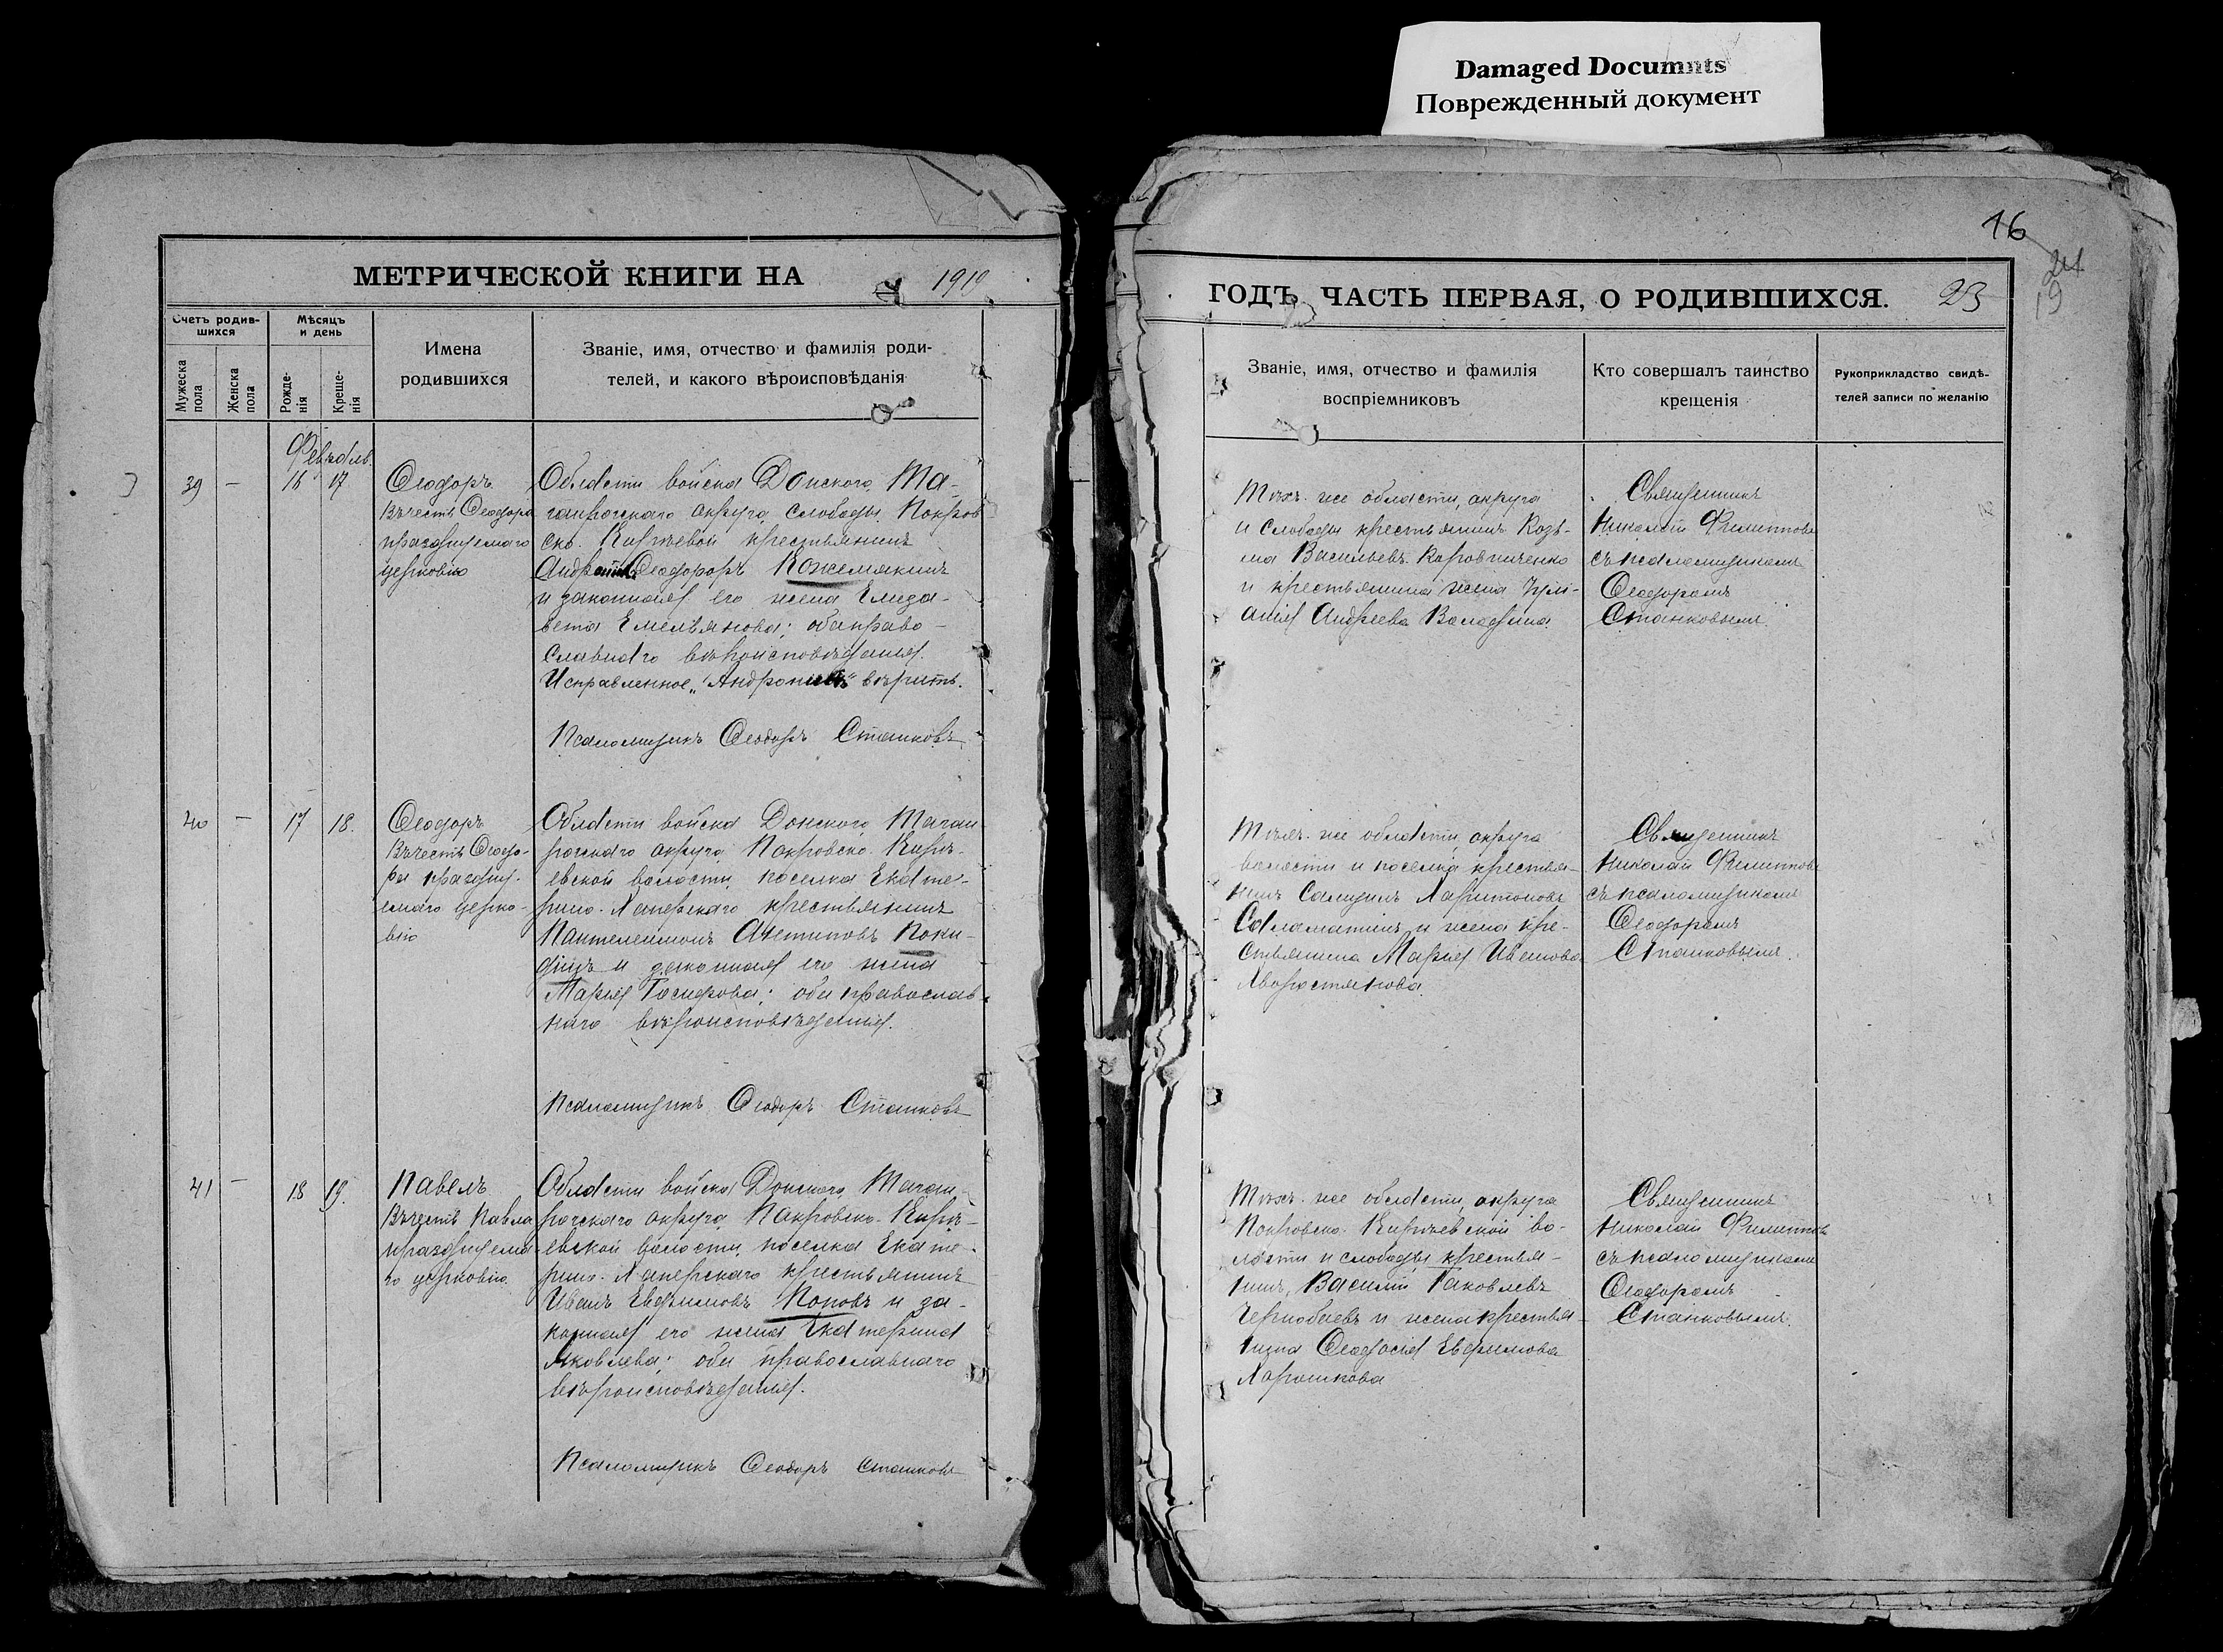 Damaged Documnts
Поврежденный документ
МЕТРИЧЕСКОЙ КНИГИ НА 1910
Счетъ родив-
шихся
Мѣсяцъ
и день
Мужеска
пола
Женска
пола
Рожде-
нія
Креще-
нія
Имена
родившихся
Званіе, имя, отчество и фамилія роди-
телей, и какого вѣроисповѣданія
Февраль
39 — 16 17
Ѳеодоръ
Въ честь Ѳеодора
празднуемаго
церковію
Области войска Донского, Та-
ганрогскаго округа, слободы Покров
ско-Кирѣевой крестьянинъ
Ѳеодоровъ Кожемякинъ
и законная его жена Елиза-
вета Емельянова; оба право-
славнаго вѣроисповѣданія.
Исправленное „Андроникъ“ вѣрить.
Псаломщикъ Ѳеодоръ Станковъ
40 — 17 18.
Ѳеодоръ
Въ честь Ѳеодо-
ра праздну-
емаго церко-
вію
Области войска Донского Таган
рогскаго округа, Покровско-Кирѣ-
евской волости, поселка Екате-
рино-Хаперскаго крестьянинъ
Пантелеимонъ Поки-
динъ и законная его жена
Марія; оба православ-
наго вѣроисповѣданія.
Псаломщикъ Ѳеодоръ Станковъ
41 — 18 19.
Павелъ
Въ честь Павла
празднуема-
го церковію
Области войска Донского, Таган
рогскаго округа, Покровско-Кирѣ-
евской волости, поселка Екате-
рино-Хаперскаго крестьянинъ
Иванъ Евфимовъ Поповъ и за-
конная его жена Екатерина
Яковлева; оба православнаго
вѣроисповѣданія.
Псаломщикъ Ѳеодоръ Станковъ
16
21
19
ГОДЪ, ЧАСТЬ ПЕРВАЯ, О РОДИВШИХСЯ. 23
Званіе, имя, отчество и фамилія
воспріемниковъ
Кто совершалъ таинство
крещенія
Рукоприкладство свидѣ-
телей записи по желанію
Тѣхъ-же области, округа
и слободы крестьянинъ Козь-
ма Васильевъ
и крестьянина жена Іулі-
анія Андреева
Священникъ
Николай Филипповъ
съ псаломщикомъ
Ѳеодоромъ
Станковымъ.
Тѣхъ-же области, округа
волости и поселка крестья-
нинъ Самуилъ Харитоновъ
Саламатинъ и жена кре-
стьянина Марія Иванова
Хворостянова
Священникъ
Николай Филипповъ
съ псаломщикомъ
Ѳеодоромъ
Станковымъ.
Тѣхъ-же области, округа
Покровско-Кирѣевской во-
лости и слободы крестья-
нинъ, Василій Іаковлевъ
и жена крестья-
нина Ѳеодосія Евфимова
Харошкова
Священникъ
Николай Филипповъ
съ псаломщикомъ
Ѳеодоромъ
Станковымъ.